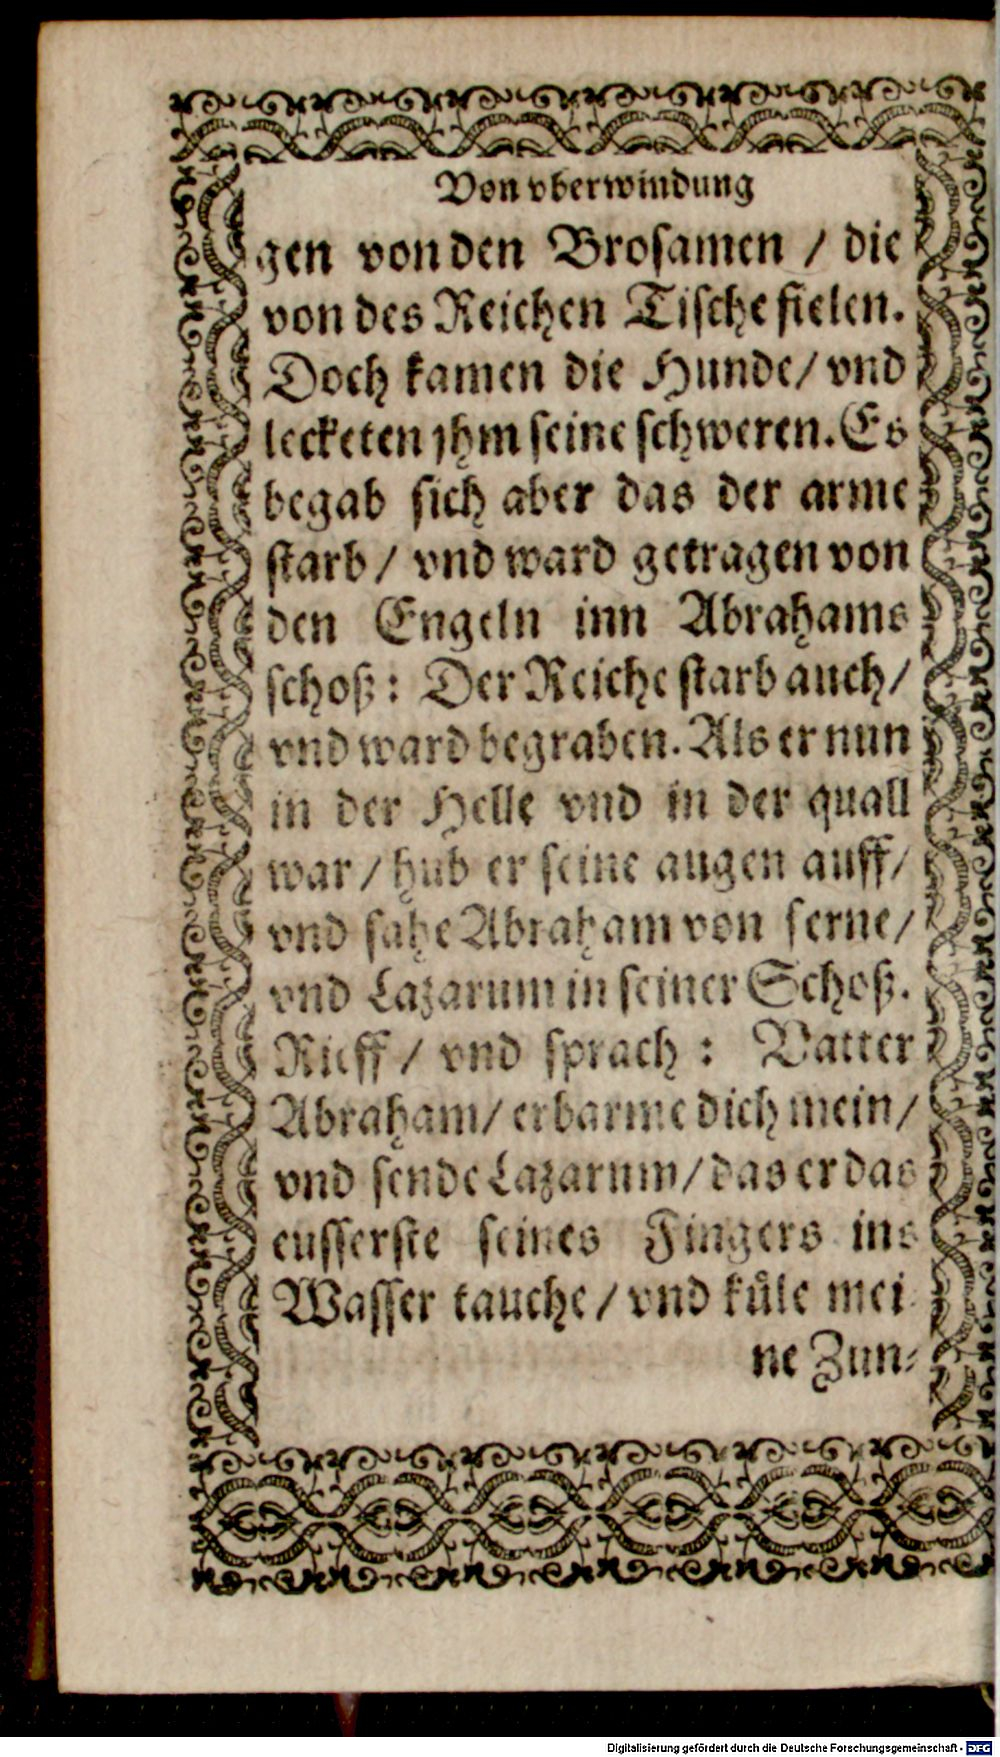 Von vberwindung
gen von den Brosamen / die
von des Reichen Tische fielen.
Doch kamen die Hunde/ vnd
lecketen jhm seine schweren. Es
begab sich aber das der arme
starb / vnd ward getragen von
den Engeln inn Abrahams
schoß: Der Reiche starb auch/
vnd ward begraben. Als er nun
in der Helle vnd in der quall
war / hub er seine augen auff/
vnd sahe Abraham von ferne/
vnd Lazarum in seiner Schoß.
Rieff / vnd sprach : Vatter
Abraham/ erbarme dich mein/
vnd sende Lazarum/ das er das
eusserste seines Fingers ins
Wasser tauche / vnd kůle mei-
ne Zun-
Digitalisierung gefördert durch die Deutsche Forschungsgemeinschaft - DFG